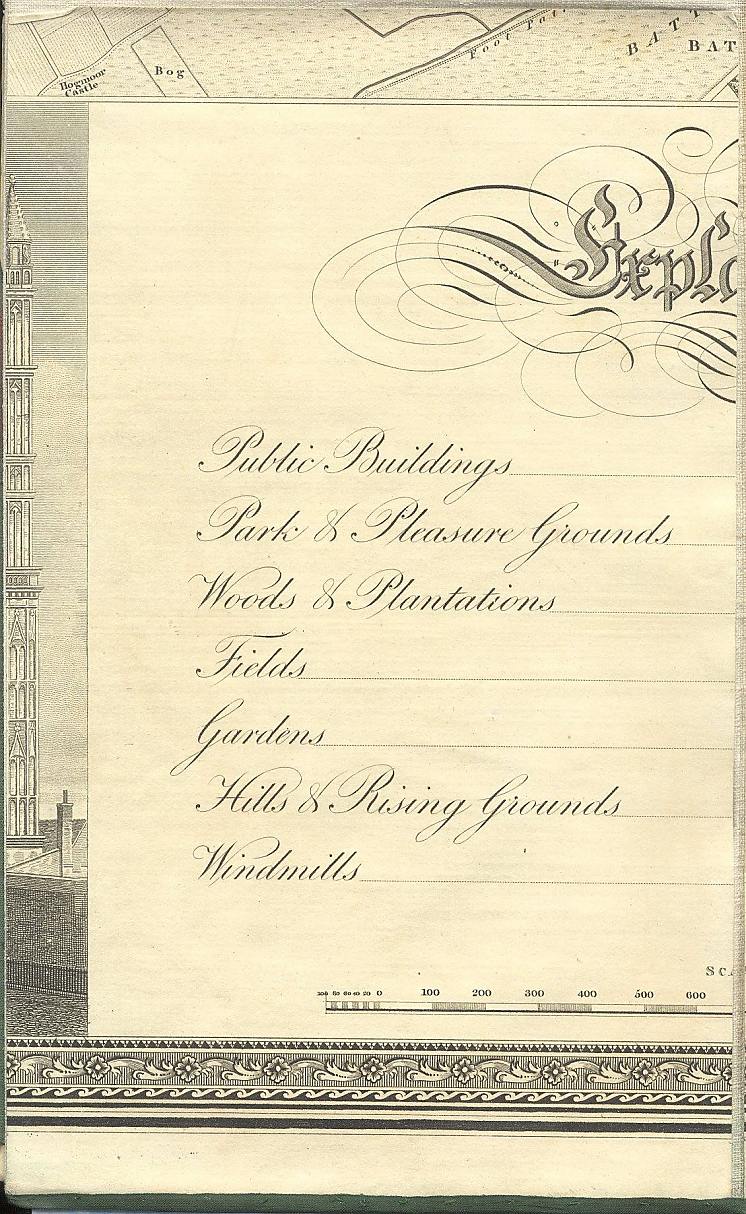 Hogmoor
Castle
Bog
Foot Pat
BATT
BAT
Expla
Public Buildings
Park & Pleasure Grounds
Woods & Plantations
Fields
Gardens
Hills & Rising Grounds
Windmills
SCA
100 80 60 40 20 0 100 200 300 400 500 600